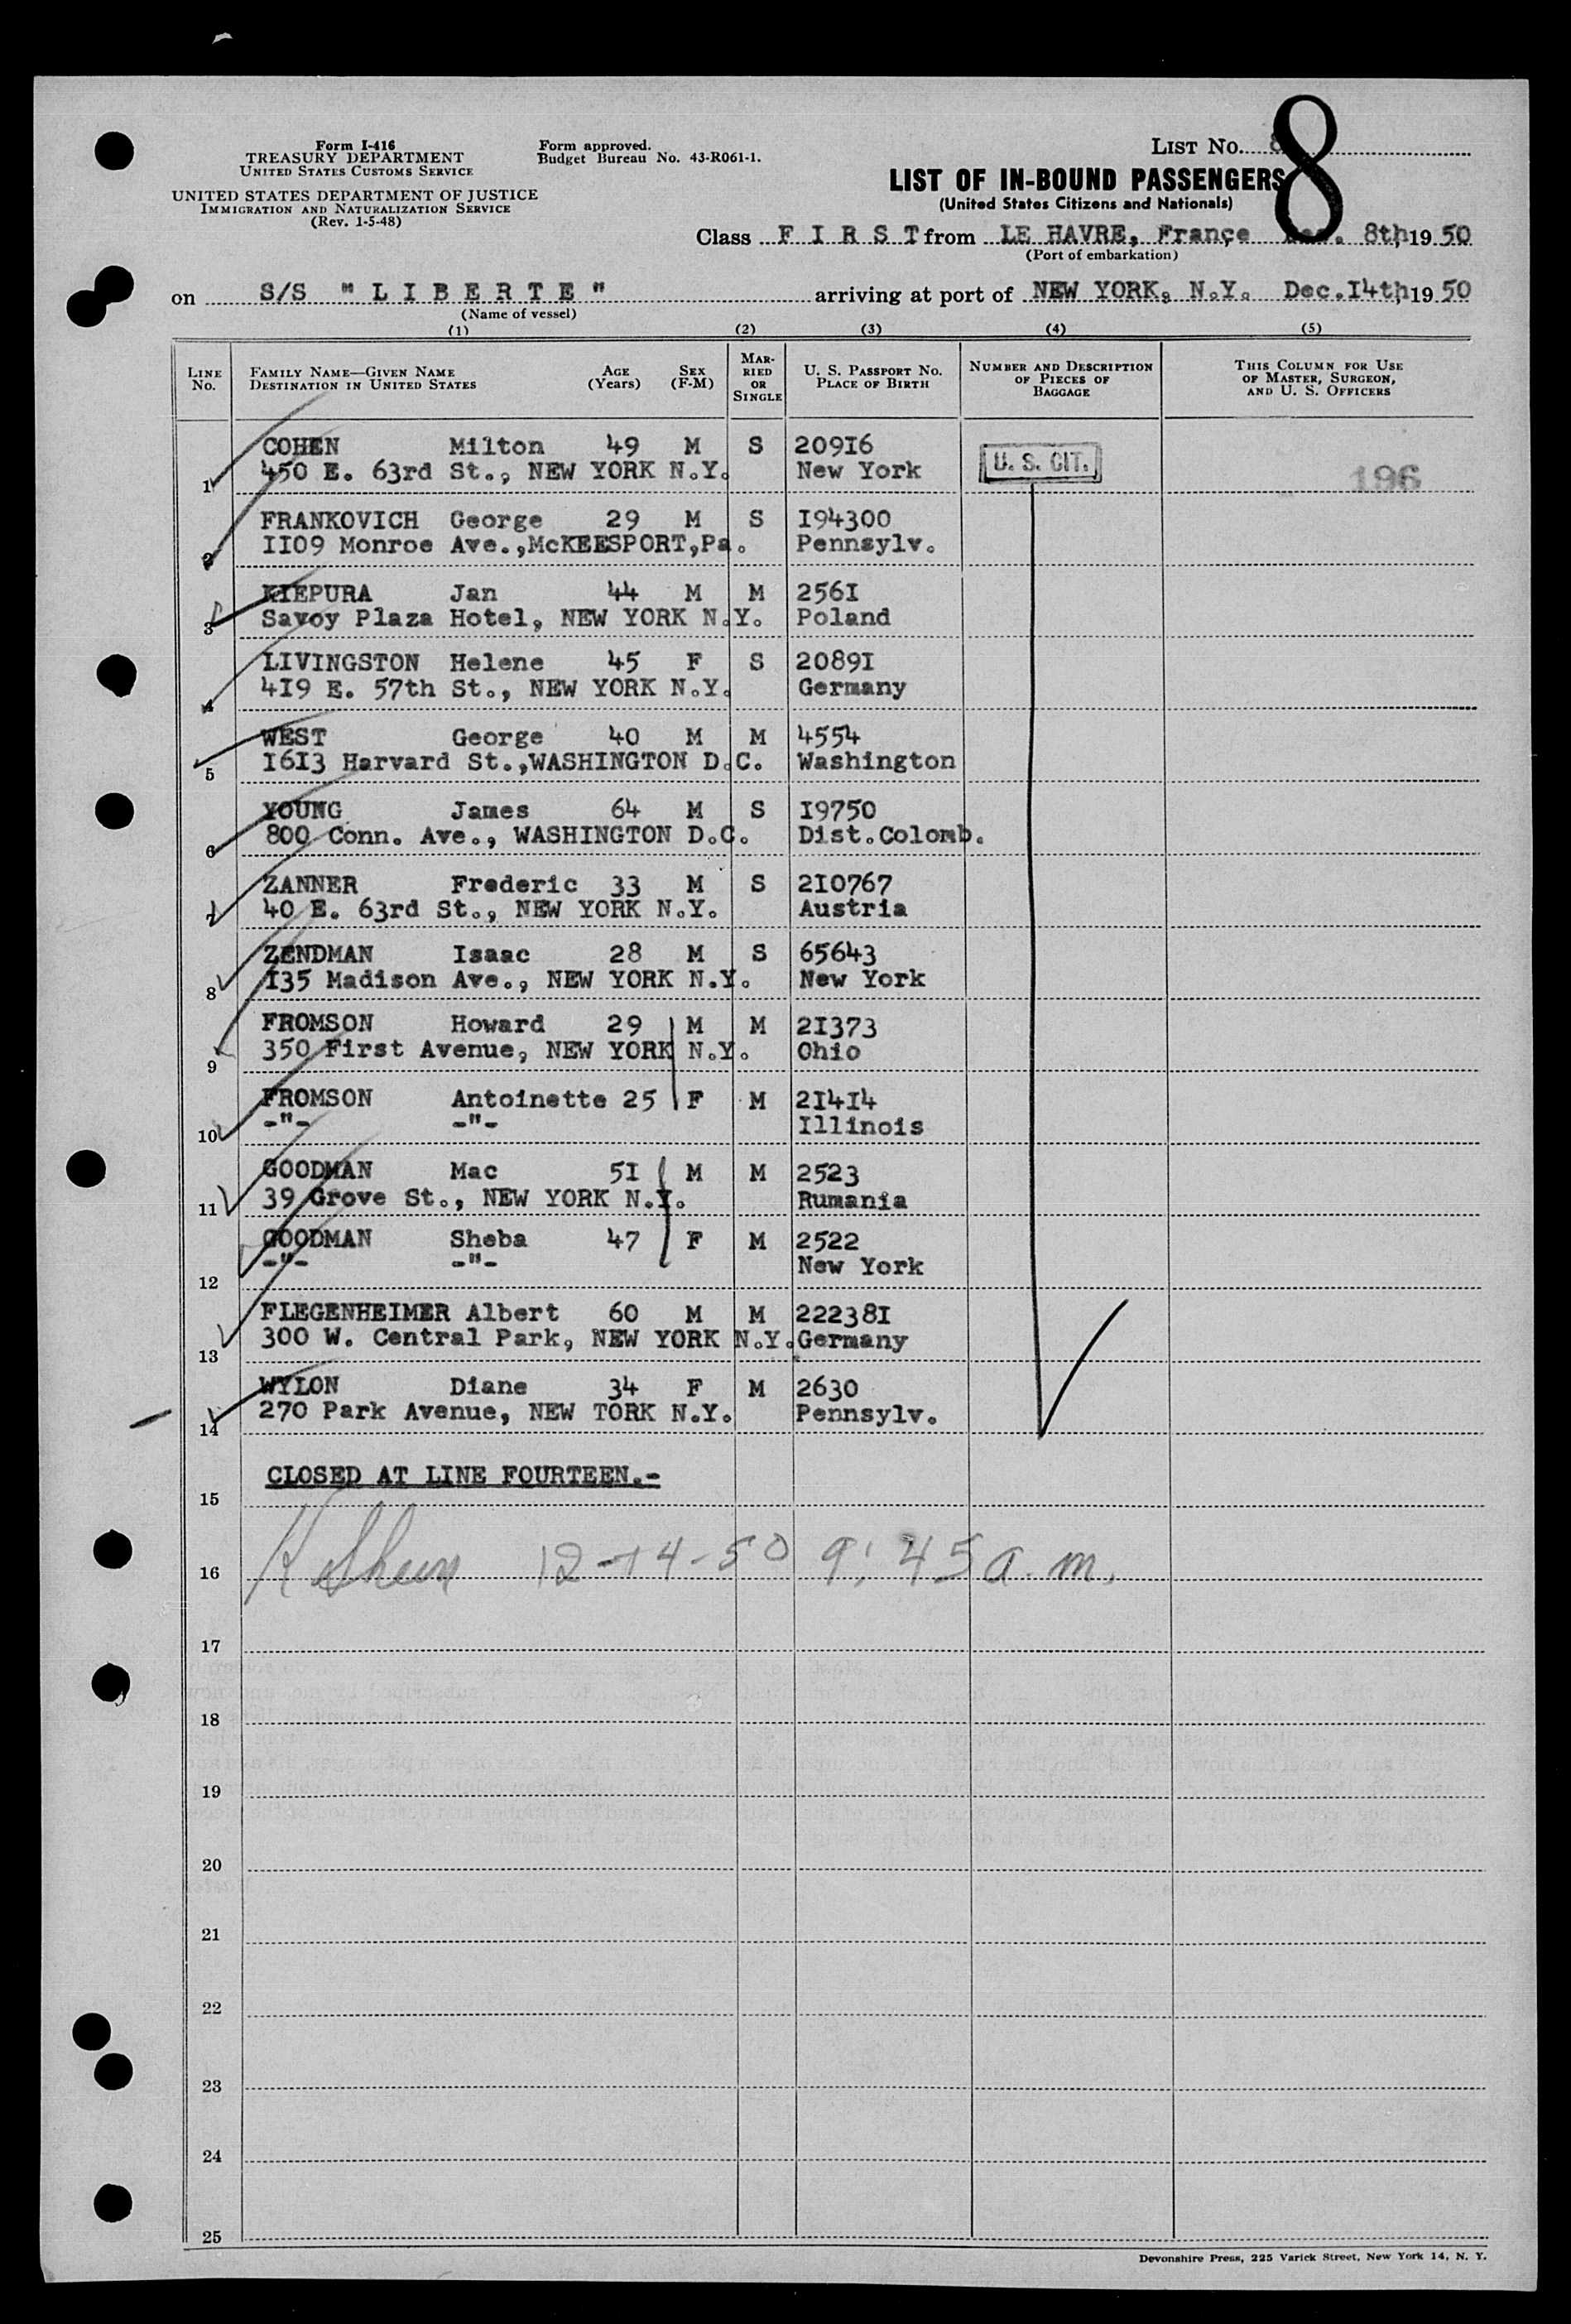 Form I-416
TREASURY DEPARTMENT
UNITED STATES CUSTOMS SERVICE
UNITED STATES DEPARTMENT OF JUSTICE
IMMIGRATION AND NATURALIZATION SERVICE
(Rev. 1-5-48)
Form approved.
Budget Bureau No. 43-R061-1.
LIST No. 8
8
LIST OF IN-BOUND PASSENGERS
(United States Citizens and Nationals)
Class F I R S T from LE HAVRE, France 8th 19 50
(Port of embarkation)
on S/S "L I B E R T E" arriving at port of NEW YORK, N.Y. Dec.I4th 19 50
(Name of vessel)
(1) (2) (3) (4) (5)
LINE No.
FAMILY NAME—GIVEN NAME
DESTINATION IN UNITED STATES
AGE (Years)
SEX (F-M)
MARRIED OR SINGLE
U. S. PASSPORT No.
PLACE OF BIRTH
NUMBER AND DESCRIPTION OF PIECES OF BAGGAGE
THIS COLUMN FOR USE OF MASTER, SURGEON, AND U. S. OFFICERS
COHEN Milton 49 M S 209I6 U. S. CIT.
1 450 E. 63rd St., NEW YORK N.Y. New York 196
FRANKOVICH George 29 M S I94300
2 II09 Monroe Ave.,McKEESPORT,Pa. Pennsylv.
KIEPURA Jan 44 M M 256I
3 Savoy Plaza Hotel, NEW YORK N.Y. Poland
LIVINGSTON Helene 45 F S 2089I
4 4I9 E. 57th St., NEW YORK N.Y. Germany
WEST George 40 M M 4554
5 I6I3 Harvard St.,WASHINGTON D.C. Washington
YOUNG James 64 M S I9750
6 800 Conn. Ave., WASHINGTON D.C. Dist.Colomb.
ZANNER Frederic 33 M S 2I0767
7 40 E. 63rd St., NEW YORK N.Y. Austria
ZENDMAN Isaac 28 M S 65643
8 I35 Madison Ave., NEW YORK N.Y. New York
FROMSON Howard 29 M M 2I373
9 350 First Avenue, NEW YORK N.Y. Ohio
FROMSON Antoinette 25 F M 2I4I4
10 -"- -"- Illinois
GOODMAN Mac 5I M M 2523
11 39 Grove St., NEW YORK N.Y. Rumania
GOODMAN Sheba 47 F M 2522
12 -"- -"- New York
FLEGENHEIMER Albert 60 M M 22238I
13 300 W. Central Park, NEW YORK N.Y. Germany
WYLON Diane 34 F M 2630
14 270 Park Avenue, NEW TORK N.Y. Pennsylv.
CLOSED AT LINE FOURTEEN.-
15
16 12-14-50 9:45 a.m.
17
18
19
20
21
22
23
24
25
Devonshire Press, 225 Varick Street, New York 14, N. Y.